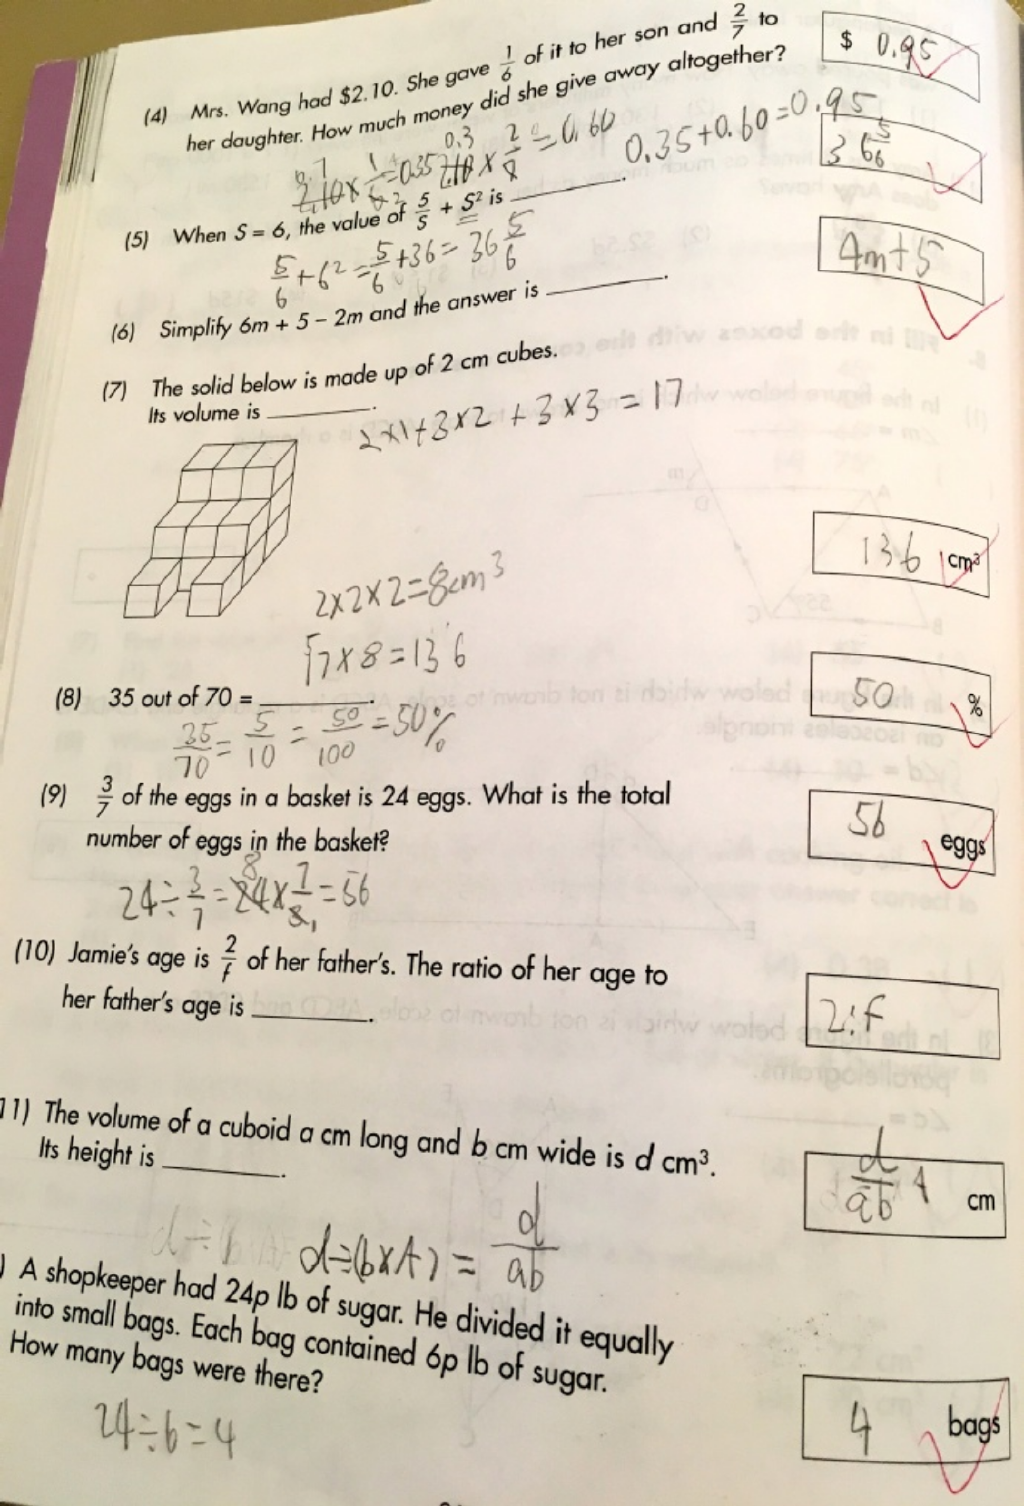 (4) Mrs. Wang had $2.10. She gave 1/6 of it to her son and 2/7 to
her daughter. How much money did she give away altogether?
$ 0.95
0.35+0.60=0.95
(5) When S = 6, the value of 5/S + S² is ______.
36 5/6
5/6 + 6² = 5/6 + 36 = 36 5/6
(6) Simplify 6m + 5 – 2m and the answer is ______.
4m+5
(7) The solid below is made up of 2 cm cubes.
Its volume is ______.
2×1+3×2+3×3=17
136 cm³
2×2×2=8cm³
17×8=136
(8) 35 out of 70 = ______.
50 %
35/70 = 5/10 = 50/100 = 50%
(9) 3/7 of the eggs in a basket is 24 eggs. What is the total
number of eggs in the basket?
56 eggs
24÷3/7=
=56
(10) Jamie's age is 2/f of her father's. The ratio of her age to
her father's age is ______.
2:f
11) The volume of a cuboid a cm long and b cm wide is d cm³.
Its height is ______.
d/ab cm
d÷(b×A) = d/ab
) A shopkeeper had 24p lb of sugar. He divided it equally
into small bags. Each bag contained 6p lb of sugar.
How many bags were there?
4 bags
24÷6=4